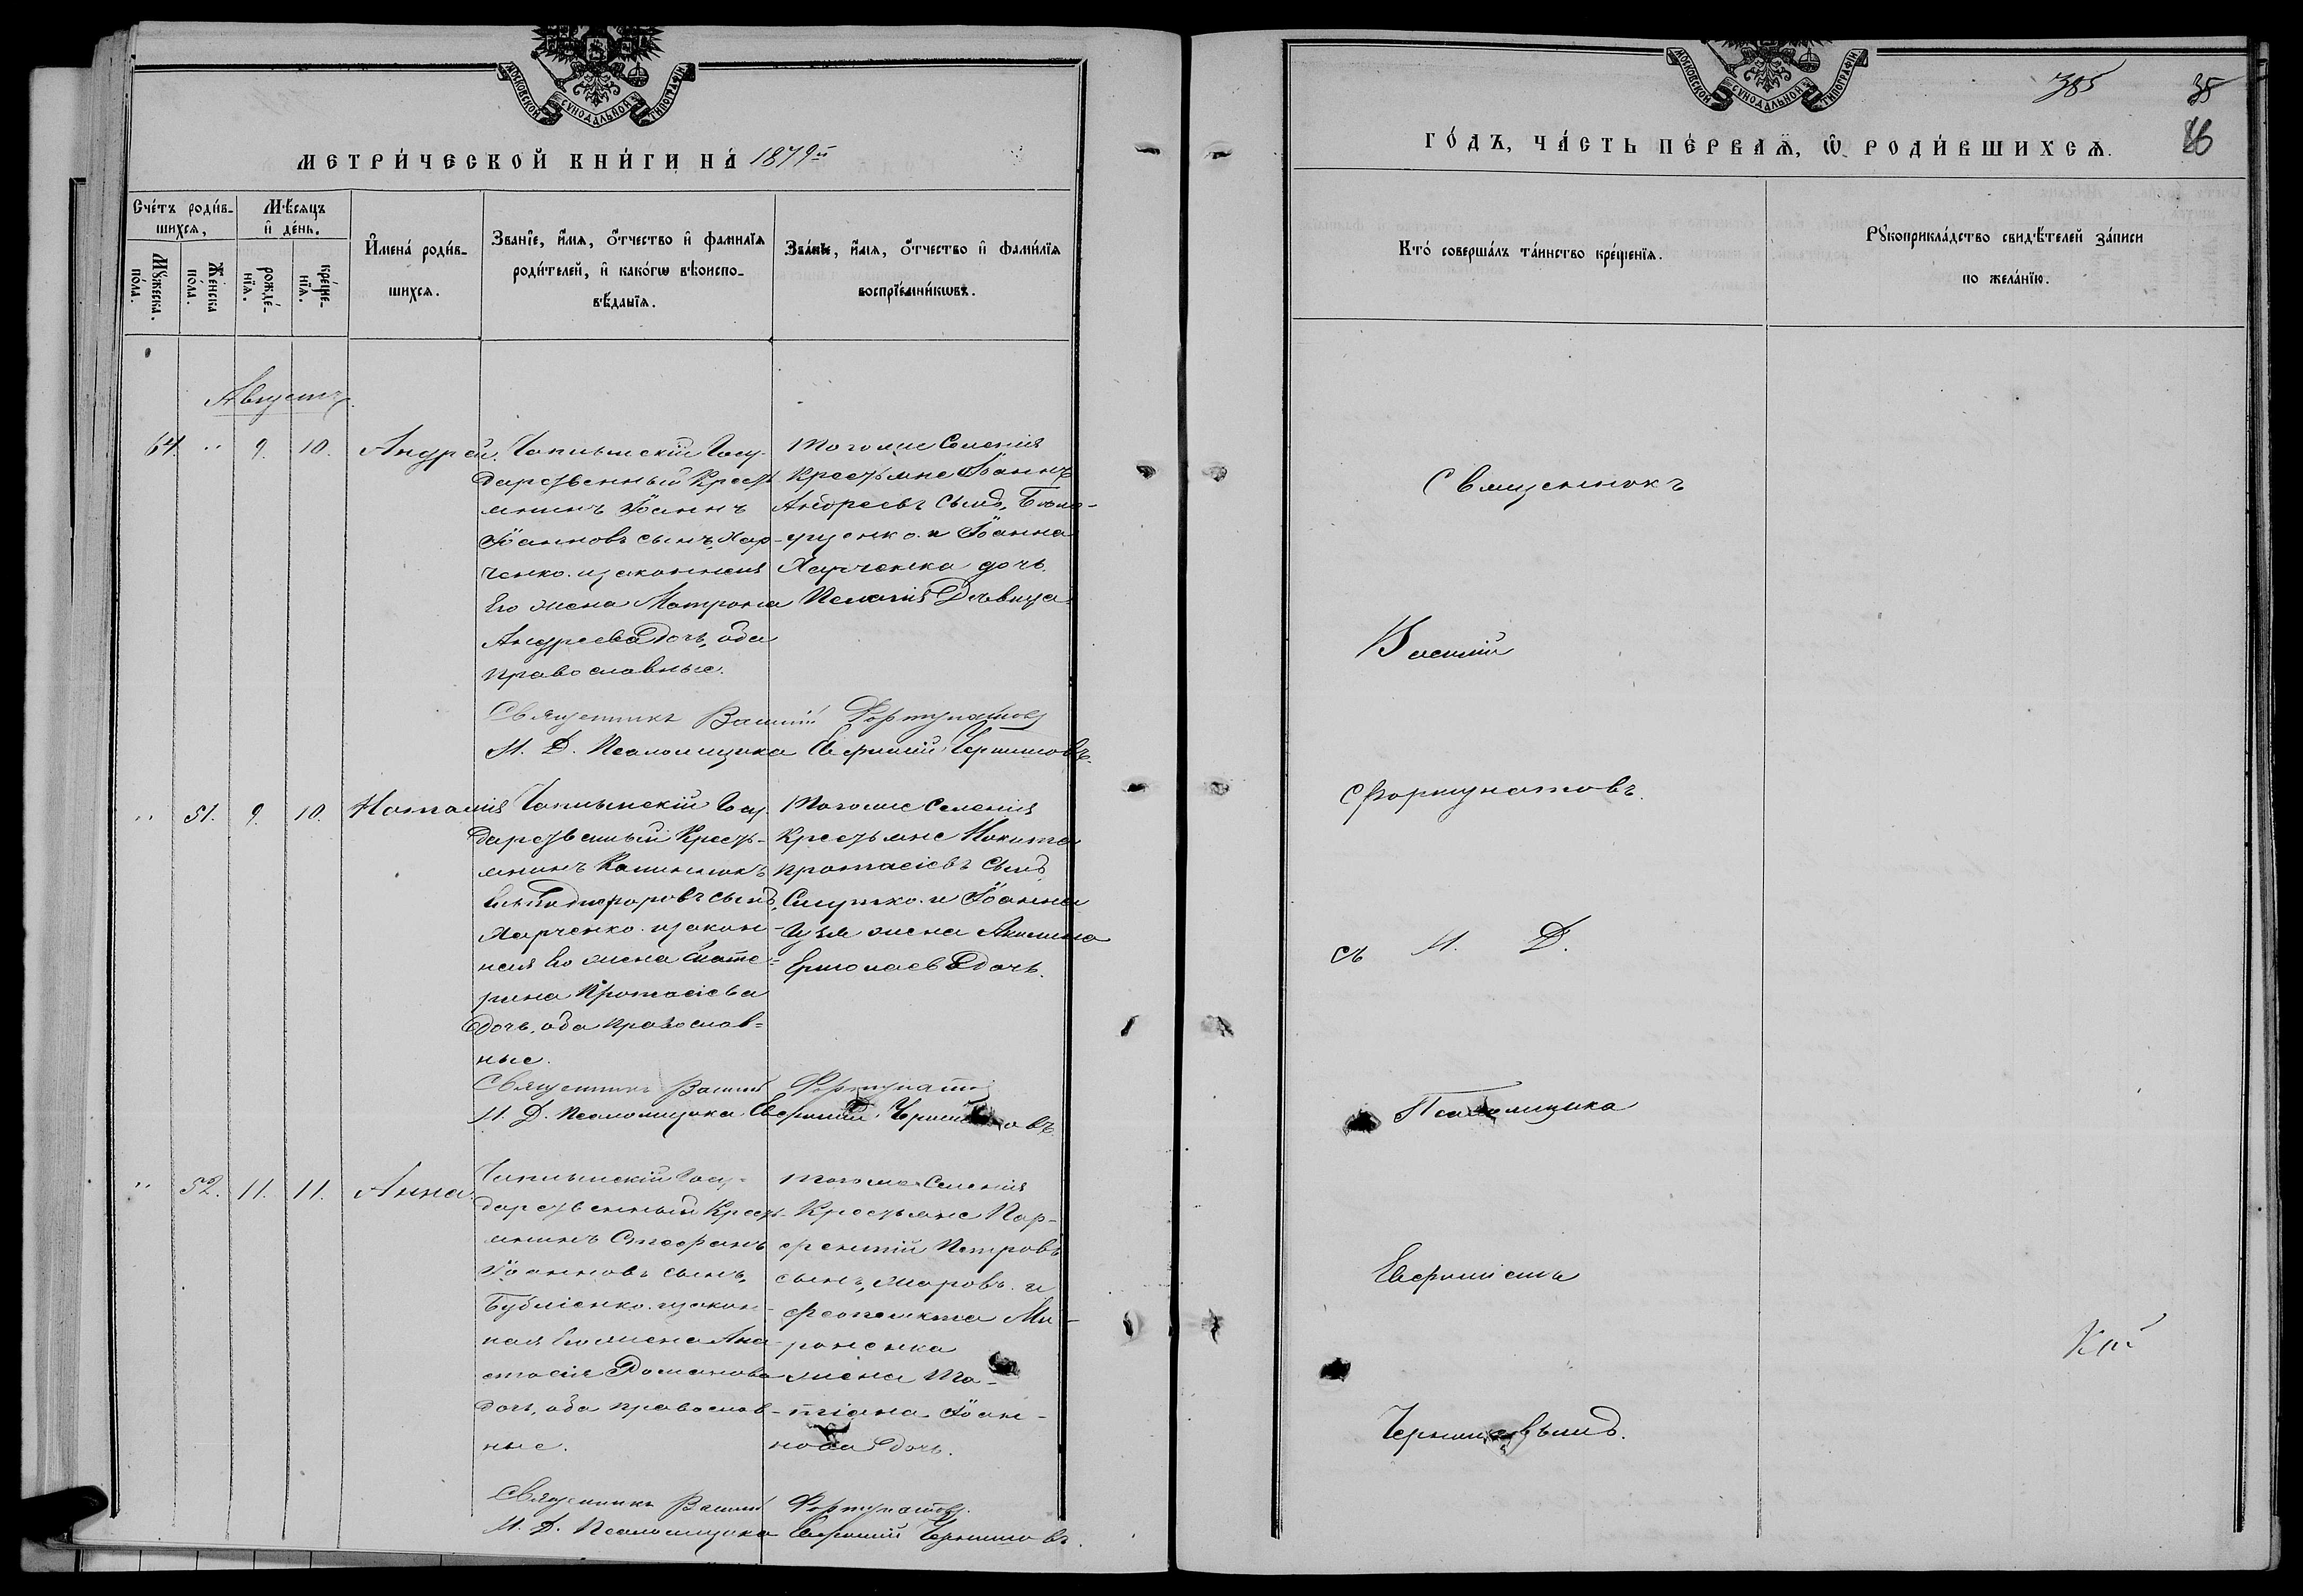 МОСКОВСКОЙ СѴНОДАЛЬНОЙ ТИПОГРАФІИ
МЕТРИ́ЧЕСКОЙ КНИ́ГИ НА́ 1879й
Сче́тъ роди́в-
шихся,
Мꙋ́жеска по́ла.
Же́нска по́ла.
Мѣ́сяцъ
и҆ де́нь.
рожде́-
нїя.
креще́-
нїя.
И҆мена́ роди́в-
шихся.
Зва́нїе, и҆́мя, ѻ҆́тчество и҆ фами́лїя
роди́телей, и҆ како́гѡ вѣ̀роиспо-
вѣ́данїя.
Зва́нїе, и҆́мя, ѻ҆́тчество и҆ фами́лїя
воспрїе́мникѡвъ.
Августъ.
64. " 9. 10. Андрей.
Чаплынскій Госу-
дарственный Кресть-
янинъ Іоаннъ
Іоанновъ сынъ, Хар-
ченко. и законная
Его жена Матрона
Андреева дочь, оба
православные.
Тогоже Селенія
Крестьяне Іоаннъ
Андреевъ сынъ,
и Іоанна
Харченка дочь.
Пелагія Дѣвица.
Священникъ Василій Фортунатовъ
И. Д. Псаломщика Евфимій Чернышовъ.
" 51. 9. 10. Наталія
Чаплынскій Госу-
дарственный Кресть-
янинъ
сынъ,
Харченко. и закон-
ная Его жена Екате-
рина Протасіева
дочь, оба православ-
ные.
Тогоже Селенія
Крестьяне Никита
Протасіевъ сынъ,
и Іоанна
жена Акилина
Ермолаева дочь.
Священникъ Василій Фортунатовъ
И. Д. Псаломщика Евфимій Чернышовъ
" 52. 11. 11. Анна.
Чаплынскій Госу-
дарственный Кресть-
янинъ Стефанъ
Іоанновъ сынъ,
Бубліенко. и закон-
ная Его жена Ана-
стасія Романова
дочь, оба православ-
ные.
Тогоже Селенія
Крестьяне Пар-
фентій Петровъ
сынъ, Жаровъ. и
Феопемпта Ми-
роненка
жена Та-
тіана Іоан-
нова дочь.
Священникъ Василій Фортунатовъ.
И. Д. Псаломщика Евфимій Чернышовъ.
МОСКОВСКОЙ СѴНОДАЛЬНОЙ ТИПОГРАФІИ
385
35
ГО́ДЪ, ЧА́СТЬ ПЕ́РВАЯ, Ѡ҆ РОДИ́ВШИХСЯ.
Кто́ соверша́лъ та́инство креще́нїя.
Рꙋкоприкла́дство свидѣ́телей за́писи
по жела́нїю.
Священникъ
Василій
Фортунатовъ.
съ И. Д.
Псаломщика
Евфиміемъ
Чернышовымъ.